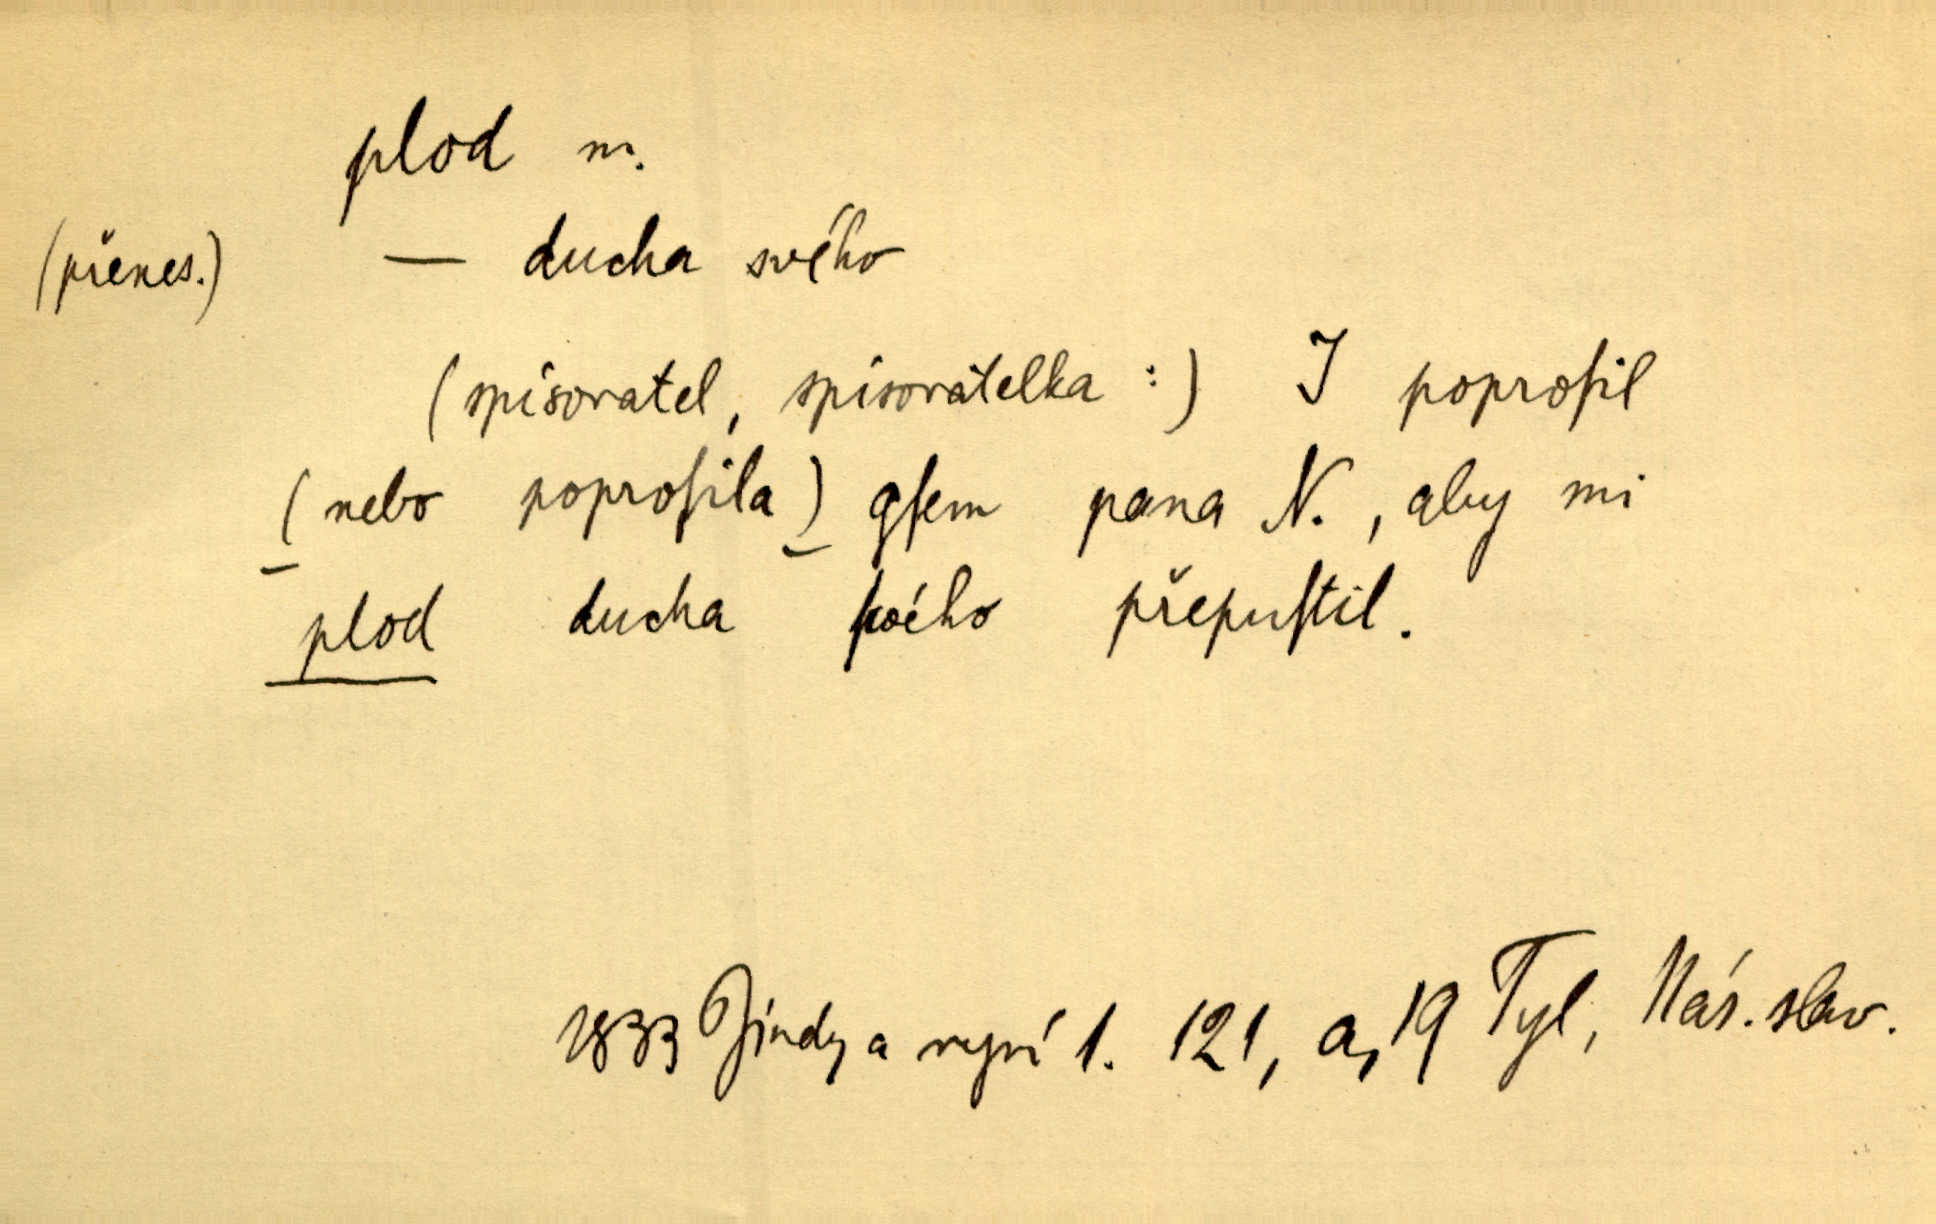 plod m.
(přenes.) — ducha svého
(spisovatel, spisovatelka :) I poproſil
(nebo poproſila) gſem pana N., aby mi
plod ducha ſvého přepuſtil.
1833 Jindy a nyní 1. 121, a, 19 Tyl, Nás. slav.